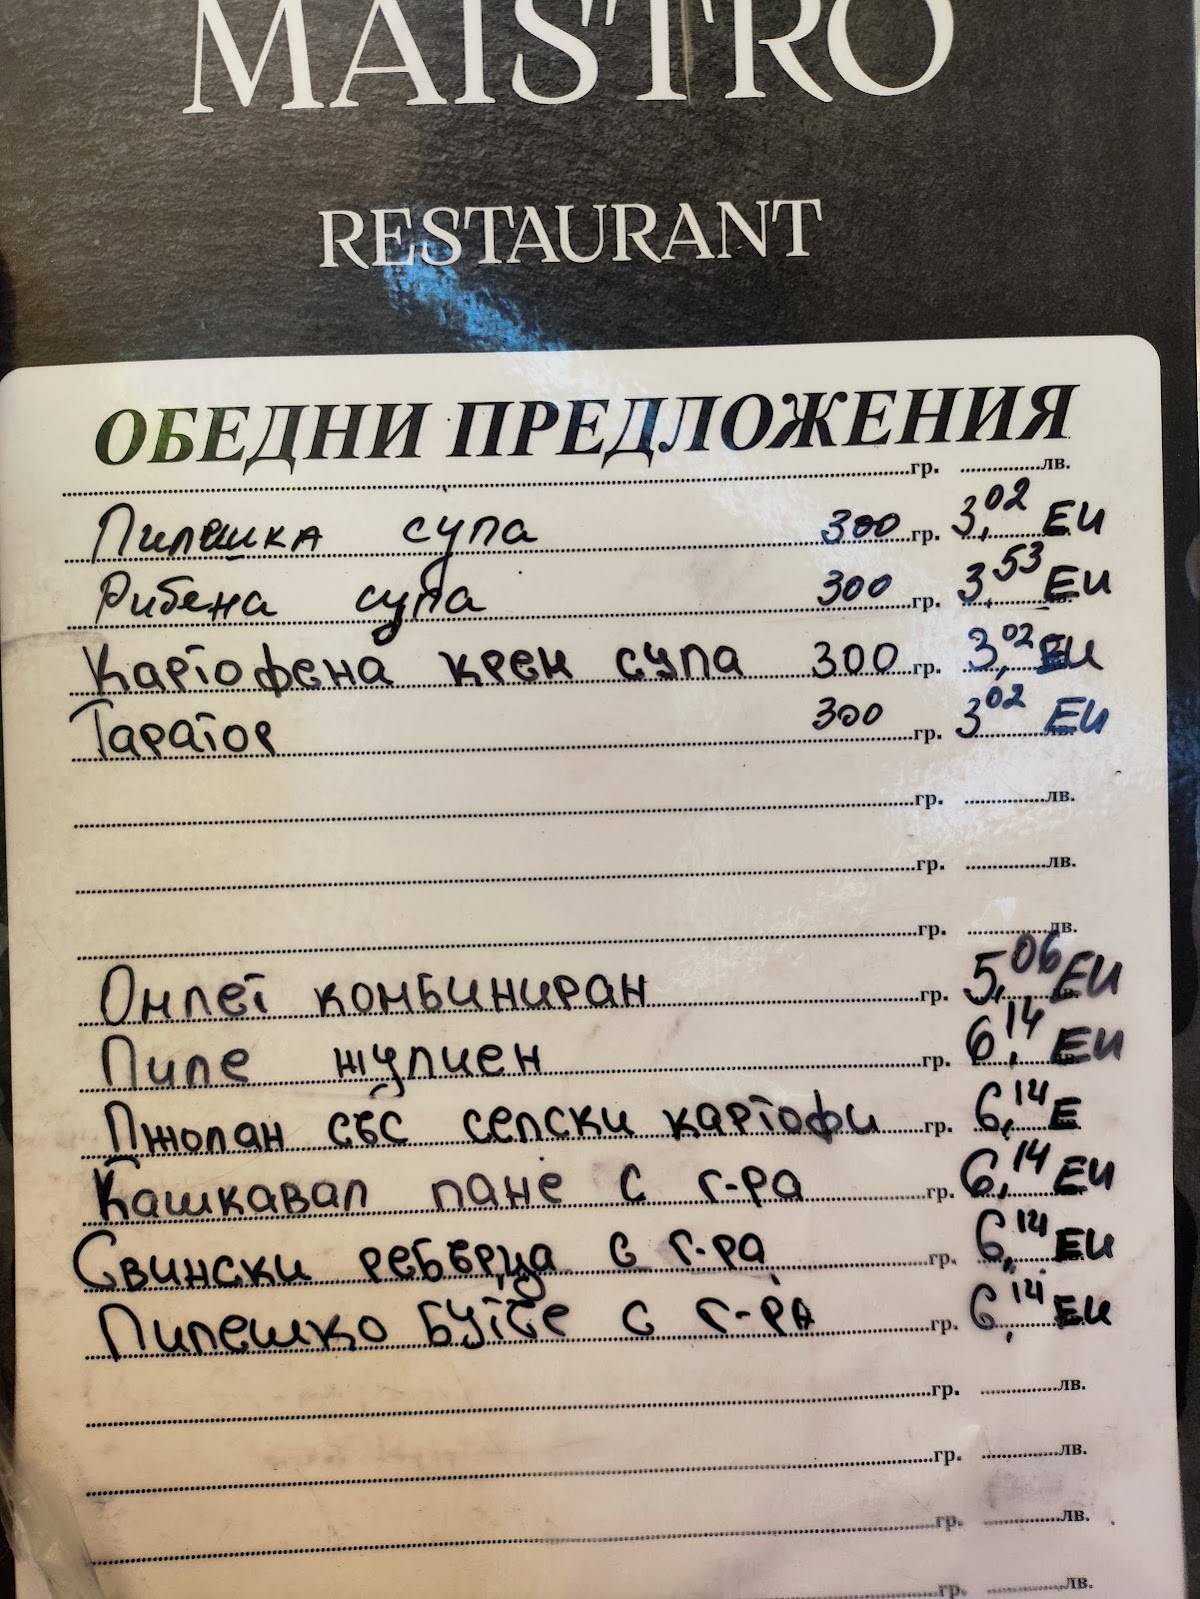 MAISTRO
RESTAURANT
ОБЕДНИ ПРЕДЛОЖЕНИЯ
гр. лв.
Пилешка супа 300 гр. 3,02 ЕИ
Рибена супа 300 гр. 3,53 ЕИ
Картофена крем супа 300 гр. 3,02 ЕИ
Таратор 300 гр. 3,02 ЕИ
гр. лв.
гр. лв.
гр. лв.
Омлет комбиниран гр. 5,06 ЕИ
Пиле жулиен гр. 6,14 ЕИ
Джолан със селски картофи гр. 6,14 Е
Кашкавал пане с г-ра гр. 6,14 ЕИ
Свински ребърца с г-ра гр. 6,14 ЕИ
Пилешко бутче с г-ра гр. 6,14 ЕИ
гр. лв.
гр. лв.
гр. лв.
гр. лв.